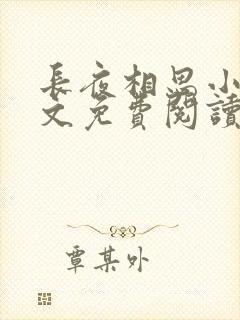 長夜相思小
文免費閱讀
覃某外